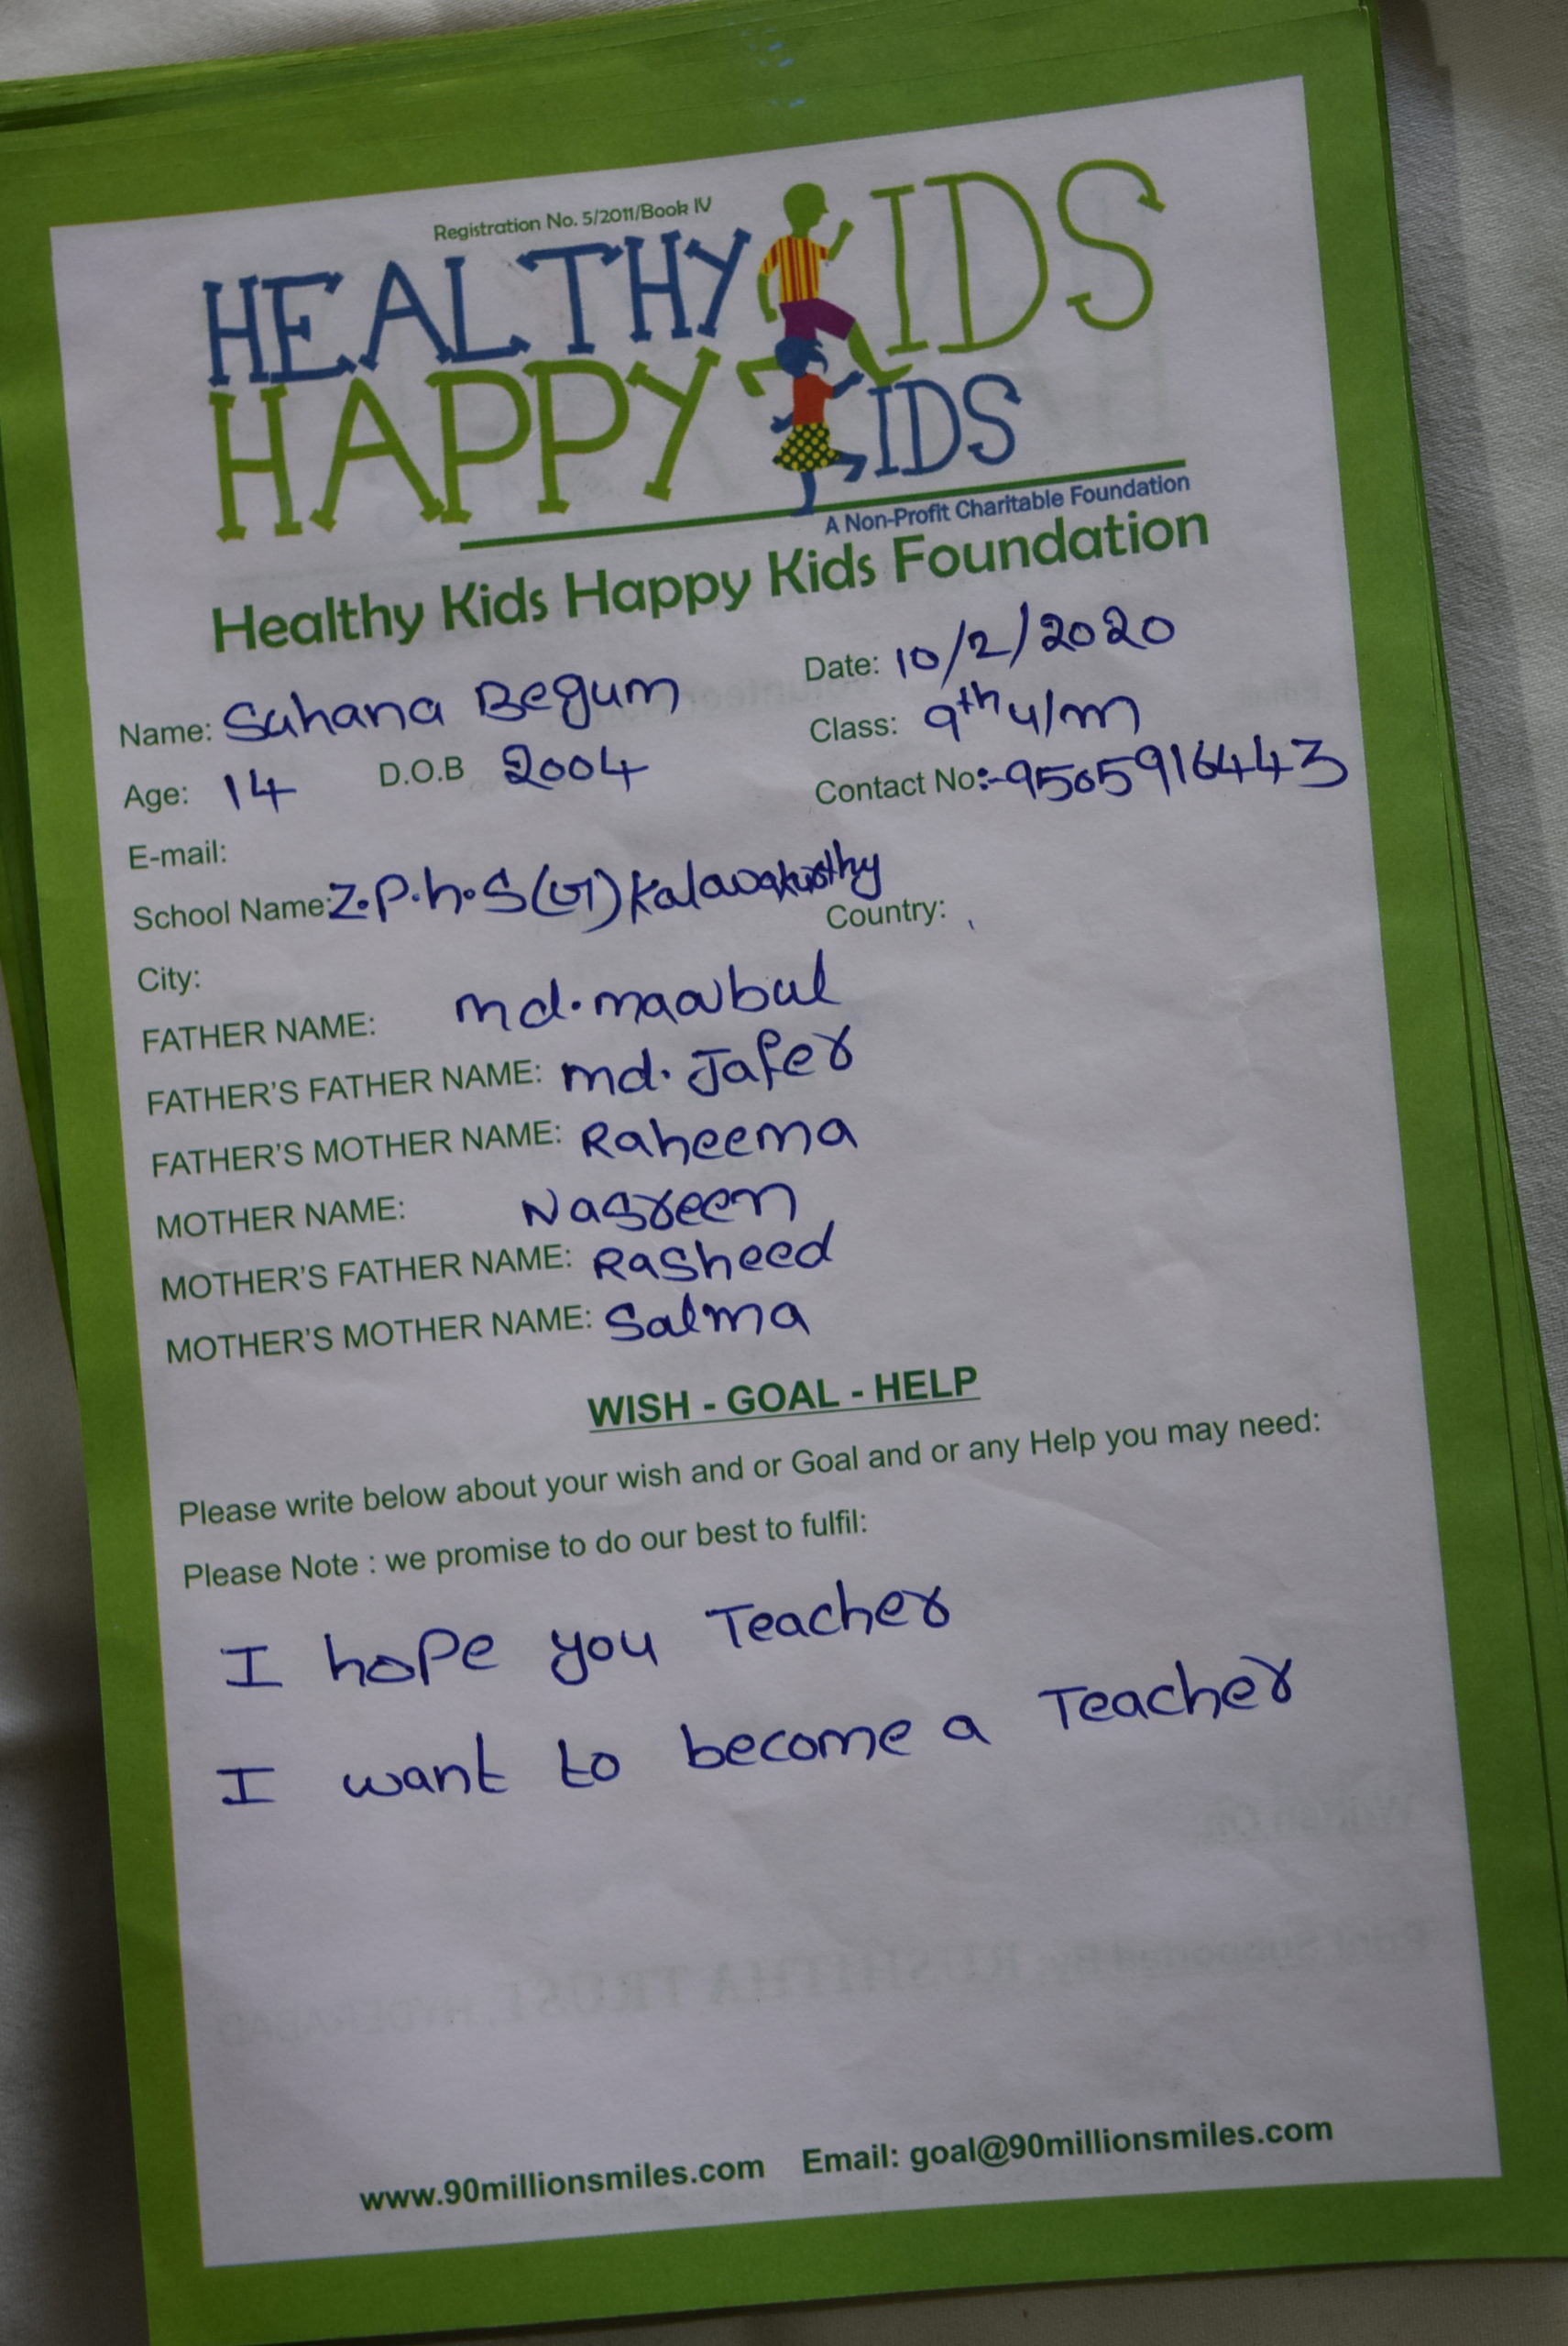 Registration No. 5/2011/Book IV
HEALTHY KIDS
HAPPY KIDS
A Non-Profit Charitable Foundation
Healthy Kids Happy Kids Foundation
Name: Suhana Begum Date: 10/2/2020
Age: 14 D.O.B 2004 Class: 9th u/m
Contact No:-9505916443
E-mail:
School Name: Z.P.h.S (G) Kalwakurthy
City: Country:
FATHER NAME: md.
FATHER'S FATHER NAME: md. Jafer
FATHER'S MOTHER NAME: Raheema
MOTHER NAME: Nasreen
MOTHER'S FATHER NAME: Rasheed
MOTHER'S MOTHER NAME: Salma
WISH - GOAL - HELP
Please write below about your wish and or Goal and or any Help you may need:
Please Note : we promise to do our best to fulfil:
I hope you Teacher
I want to become a Teacher
www.90millionsmiles.com Email: goal@90millionsmiles.com